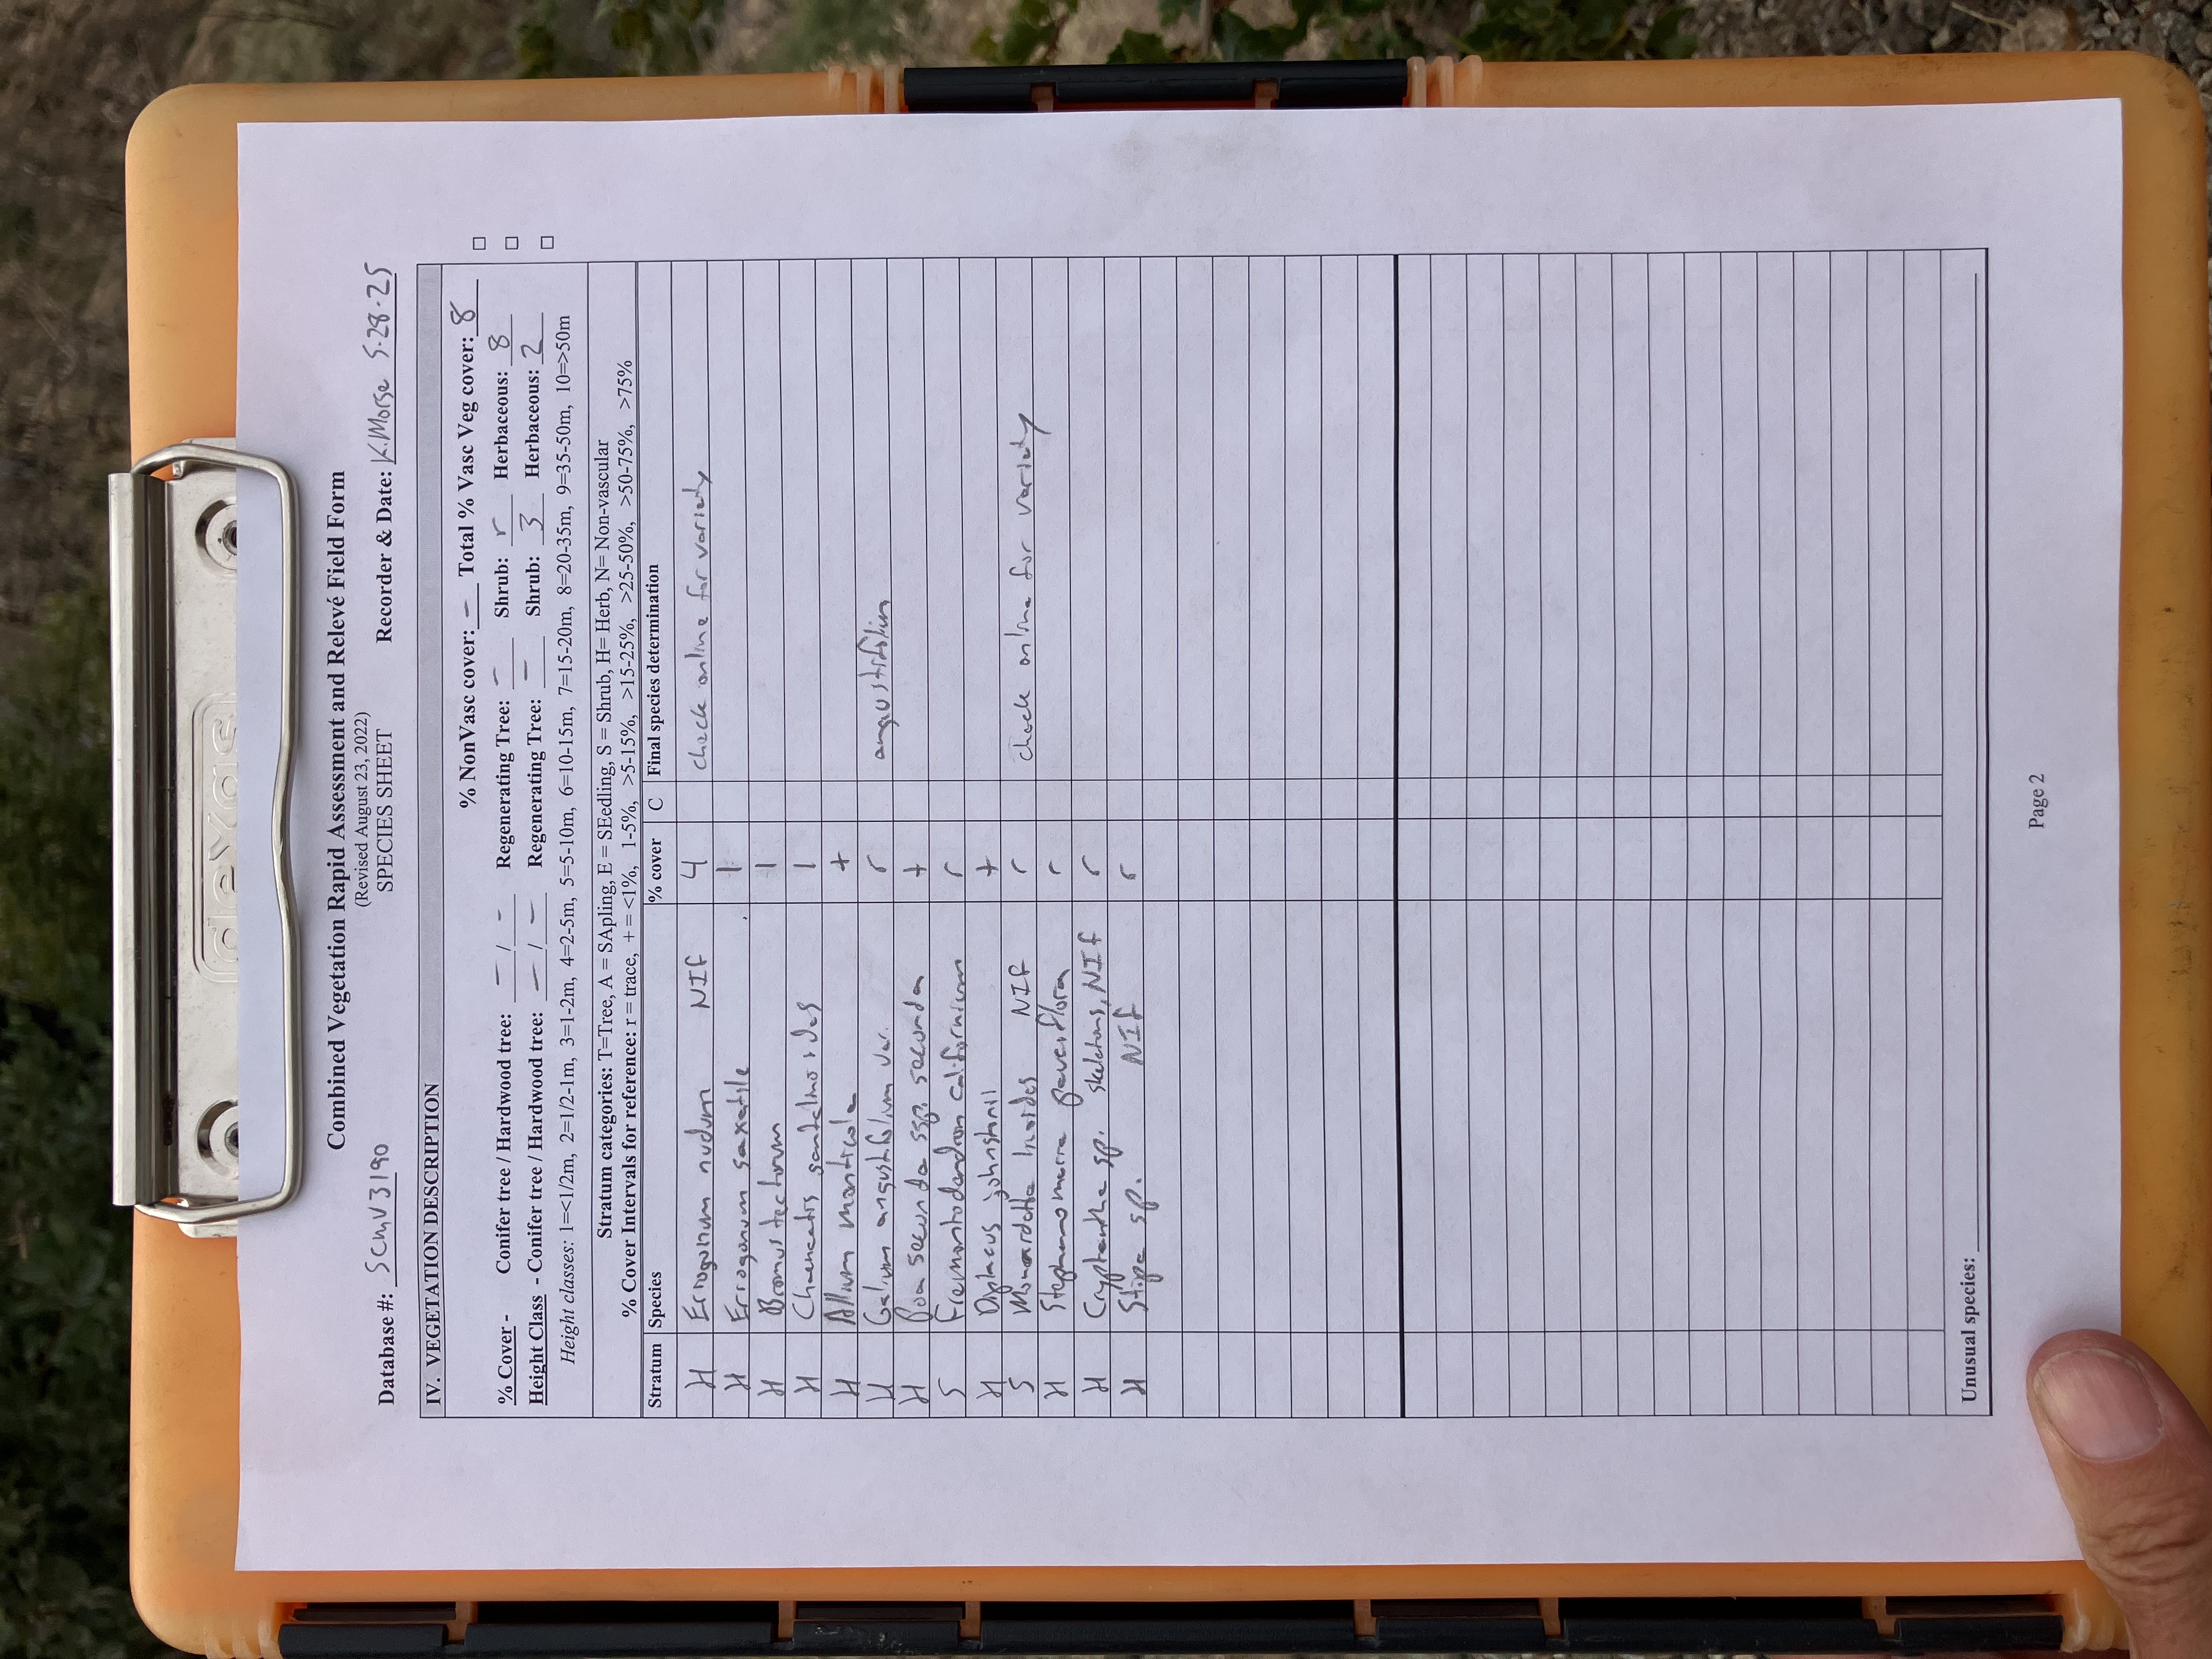 deyas
Combined Vegetation Rapid Assessment and Relevé Field Form
(Revised August 23, 2022)
Database #: SCMV3190 SPECIES SHEET Recorder & Date: K.Morse 5.28.25
IV. VEGETATION DESCRIPTION
% NonVasc cover: - Total % Vasc Veg cover: 8 □
% Cover - Conifer tree / Hardwood tree: - / - Regenerating Tree: - Shrub: r Herbaceous: 8 □
Height Class - Conifer tree / Hardwood tree: - / - Regenerating Tree: - Shrub: 3 Herbaceous: 2 □
Height classes: 1=<1/2m, 2=1/2-1m, 3=1-2m, 4=2-5m, 5=5-10m, 6=10-15m, 7=15-20m, 8=20-35m, 9=35-50m, 10=>50m
Stratum categories: T=Tree, A = SApling, E = SEedling, S = Shrub, H= Herb, N= Non-vascular
% Cover Intervals for reference: r = trace, + = <1%, 1-5%, >5-15%, >15-25%, >25-50%, >50-75%, >75%
Stratum Species % cover C Final species determination
H Eriogonum nudum NIF 4 check online for variety
H Eriogonum saxatile 1
H Bromus tectorum 1
H Chaenactis santolinoides 1
H Allium monticola +
H Galium angustifolium var. r angustifolium
H Poa secunda ssp. secunda +
S Fremontodendron californicum r
H Diplacus johnstonii +
S Monardella linoides NIF r check online for variety
H Stephanomeria pauciflora r
H Cryptantha sp. skeletons, NIF r
H Stipa sp. NIF r
Unusual species:
Page 2